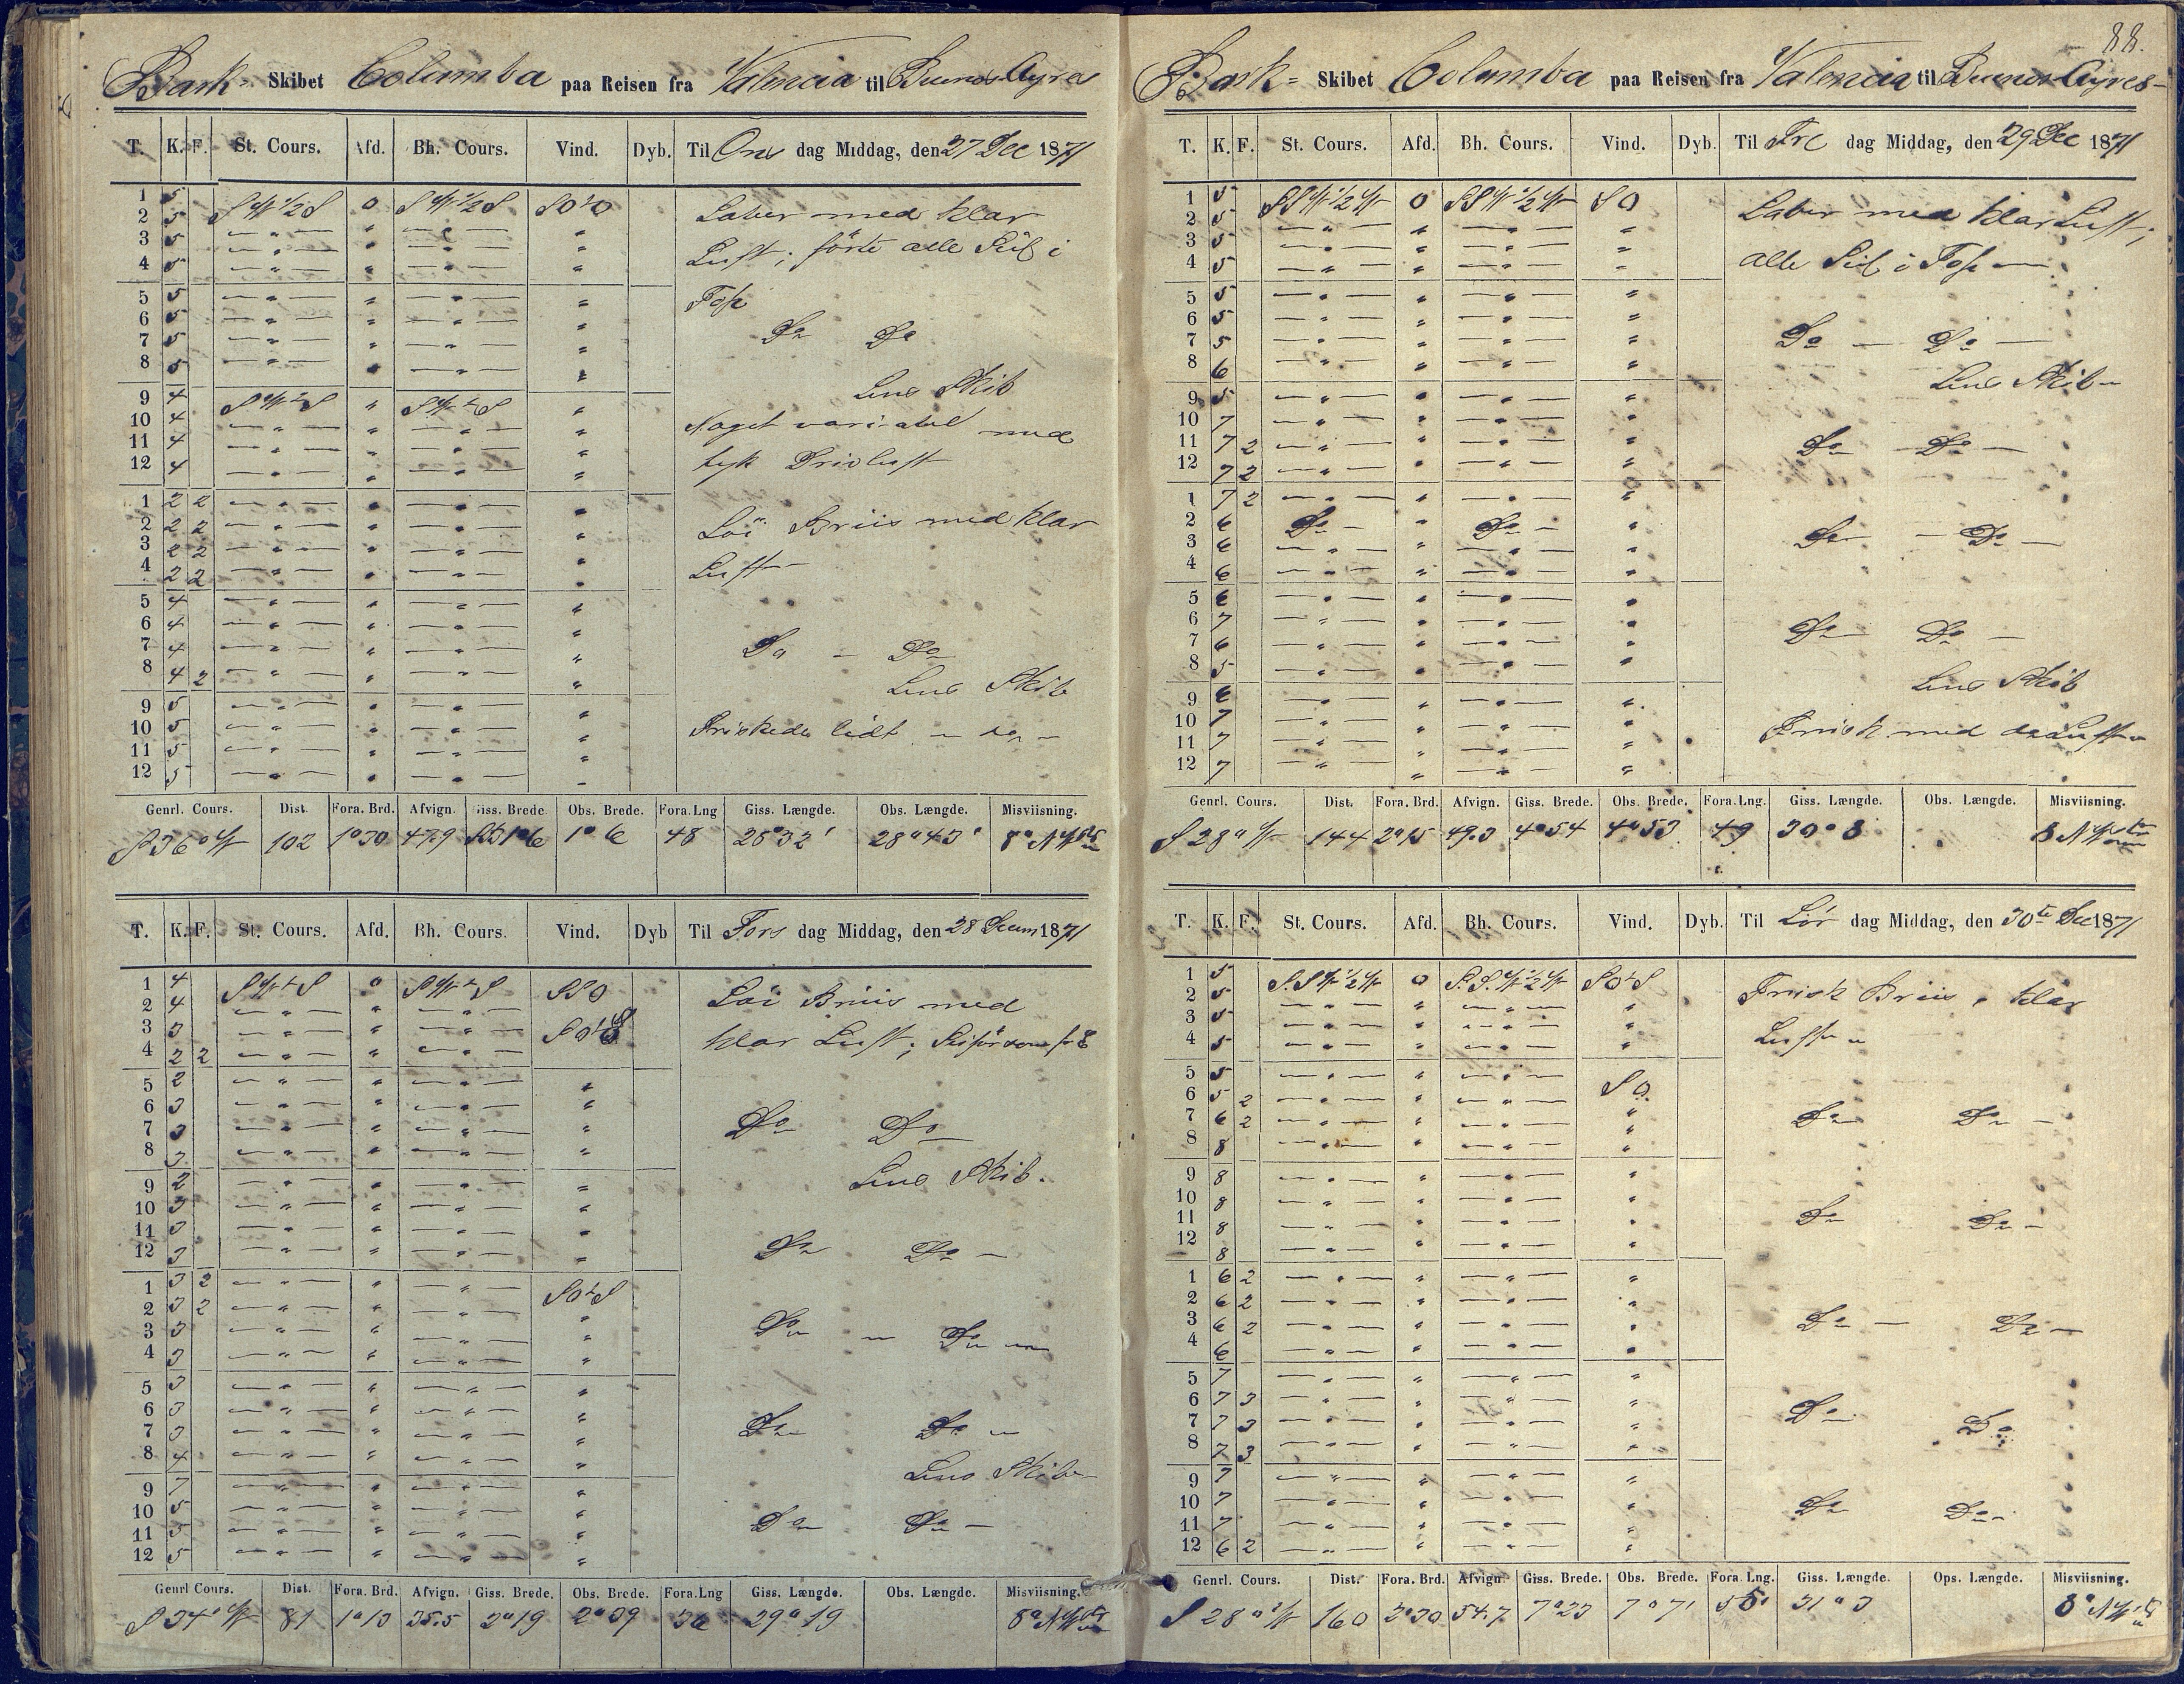 Bark- Skibet Columba paa Reisen fra Valencia til Buenos Ayres
T. K. F. St. Cours. Afd. Bh. Cours. Vind. Dyb. Til Ons dag Middag, den 27 Dec 1871
1 5 SW 1/2 S 0 SW 1/2 S SOtO Laber med klar
2 5 — " — " — " — "
3 5 — " — " — " — " Luft; förte alle Seil i
4 5 — " — " — " — "
5 5 — " — " — " — " Top
6 5 — " — " — " — "
7 5 — " — " — " — " Do Do
8 5 — " — " — " — "
Lens Skib
9 4 SWtS " SWtS "
10 4 — " — " — " — " Noget variabel med
11 4 — " — " — " — "
12 4 — " — " — " — " tyk Driv luft
1 2 2 — " — " — " — "
2 2 2 — " — " — " — " Löi Briis med klar
3 2 2 — " — " — " — "
4 2 2 — " — " — " — " Luft
5 4 — " — " — " — "
6 4 — " — " — " — "
7 4 — " — " — " — " Do — Do
8 4 2 — " — " — " — " Lens Skib
9 5 — " — " — " — "
10 5 — " — " — " — " Friskede lidt — do —
11 5 — " — " — " — "
12 5 — " — " — " — "
Genrl. Cours. Dist. Fora. Brd. Afvign. Giss. Brede Obs. Brede. Fora.Lng Giss. Længde. Obs. Længde. Misviisning.
S 36° W 102 1°30 47.9 1°6 1° 6 48 28°32' 28°43' 8° NW
T. K. F. St. Cours. Afd. Bh. Cours. Vind. Dyb Til Tors dag Middag, den 28 Decem 1871
1 4 SWtS 0 SWtS SSO Löi Briis med
2 4 — " — " — " —
3 3 — " — " — " — SOtS klar Luft;
4 2 2 — " — " — " —
5 2 — " — " — " — "
6 3 — " — " — " — "
7 3 — " — " — " — " Do Do
8 3 — " — " — " — "
9 2 — " — " — " — " Lens Skib.
10 3 — " — " — " — "
11 3 — " — " — " — "
12 3 — " — " — " — " Do Do —
1 3 2 — " — " — " — SOtS
2 3 2 — " — " — " — "
3 3 — " — " — " — " Do — Do —
4 3 — " — " — " — "
5 3 — " — " — " — "
6 3 — " — " — " — "
7 3 — " — " — " — " Do Do
8 4 — " — " — " — "
9 7 — " — " — " — " Lens Skib
10 5 — " — " — " — "
11 5 — " — " — " — " Do Do —
12 5 — " — " — " — "
Genrl Cours. Dist. Fora. Brd. Afvign. Giss. Brede. Obs. Brede. Fora.Lng Giss. Længde. Obs. Længde. Misviisning.
S 34° W 81 1°13 35.5 2°19 2°39 36 29°19 8° NW
88.
Bark= Skibet Columba paa Reisen fra Valencia til Buenos Ayres-
T. K. F. St. Cours. Afd. Bh. Cours. Vind. Dyb. Til Fre dag Middag, den 29 Dec 1871
1 5 SSW 1/2 W 0 SSW 1/2 W SO Laber med klar Luft;
2 5 — " — " — " — "
3 5 — " — " — " — "
4 5 — " — " — " — " alle Seil i Top —
5 5 — " — " — " — "
6 5 — " — " — " — "
7 5 — " — " — " — " Do — Do —
8 6 — " — " — " — "
9 5 — " — " — " — " Lens Skib
10 7 — " — " — " — "
11 7 2 — " — " — " — " Do Do —
12 7 2 — " — " — " — "
1 7 2 — " — " — " — "
2 6 Do — " Do — "
3 6 — " — " — " — " Do — Do —
4 6 — " — " — " — "
5 6 — " — " — " — "
6 7 — " — " — " — "
7 6 — " — " — " — " Do Do —
8 5 — " — " — " — "
9 6 — " — " — " — " Lens Skib
10 7 — " — " — " — "
11 7 — " — " — " — " Frisk med do Luft
12 7 — " — " — " — "
Genrl. Cours. Dist. Fora. Brd. Afvign. Giss. Brede. Obs. Brede. Fora.Lng. Giss. Længde. Obs. Længde. Misviisning.
S 28° W 144 2°15 49.3 4°54 4°53 49 30°8 8 NW
T. K. F. St. Cours. Afd. Bh. Cours. Vind. Dyb. Til Lör dag Middag, den 30te Dec 1871
1 5 S.SW 1/2 W 0 S.S.W 1/2 W SOtS Frisk Briis, klar
2 5 — " — " — " — "
3 5 — " — " — " — "
4 5 — " — " — " — " Luft
5 5 — " — " — " — SO
6 5 2 — " — " — " —
7 6 2 — " — " — " — " Do Do —
8 8 — " — " — " — "
9 8 — " — " — " — "
10 8 — " — " — " — "
11 8 — " — " — " — " Do Do —
12 8 — " — " — " — "
1 6 2 — " — " — " — "
2 6 2 — " — " — " — "
3 6 2 — " — " — " — " Do — Do —
4 6 — " — " — " — "
5 7 — " — " — " — "
6 7 3 — " — " — " — "
7 7 3 — " — " — " — " Do Do
8 7 3 — " — " — " — "
9 7 — " — " — " — "
10 7 — " — " — " — " Do Do
11 7 — " — " — " — "
12 6 2 — " — " — " — "
Genrl. Cours. Dist. Fora. Brd. Afvign. Giss. Brede. Obs. Brede. Fora. Lng. Giss. Længde. Ops. Længde. Misviisning.
S 28° W 160 2°30 54.7 7°23 7°7' 55' 31°3 8° NW